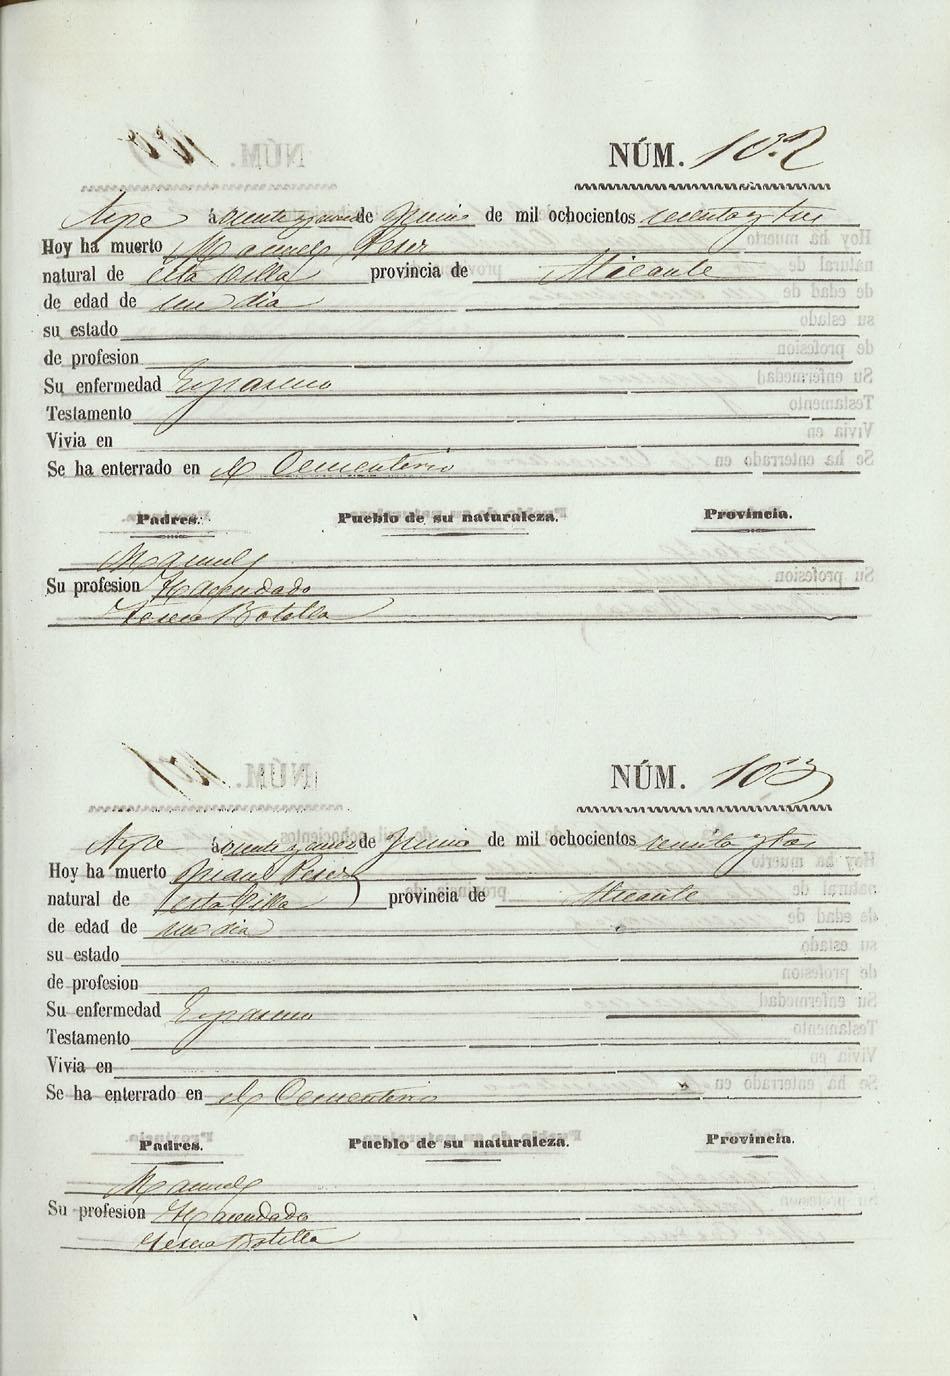 NÚM. 102
Aspe á veinte y nueve de Junio de mil ochocientos sesenta y tres
Hoy ha muerto Manuel Perez
natural de esta Villa provincia de Alicante
de edad de un dia
su estado
de profesion
Su enfermedad Espasmo
Testamento
Vivia en
Se ha enterrado en el Cementerio
Padres. Pueblo de su naturaleza. Provincia.
Manuel
Su profesion Hacendado
Teresa Botella
NÚM. 103
Aspe á veinte y nueve de Junio de mil ochocientos sesenta y tres
Hoy ha muerto Juan Perez
natural de esta Villa provincia de Alicante
de edad de un dia
su estado
de profesion
Su enfermedad Espasmo
Testamento
Vivia en
Se ha enterrado en el Cementerio
Padres. Pueblo de su naturaleza. Provincia.
Manuel
Su profesion Hacendado
Teresa Botella